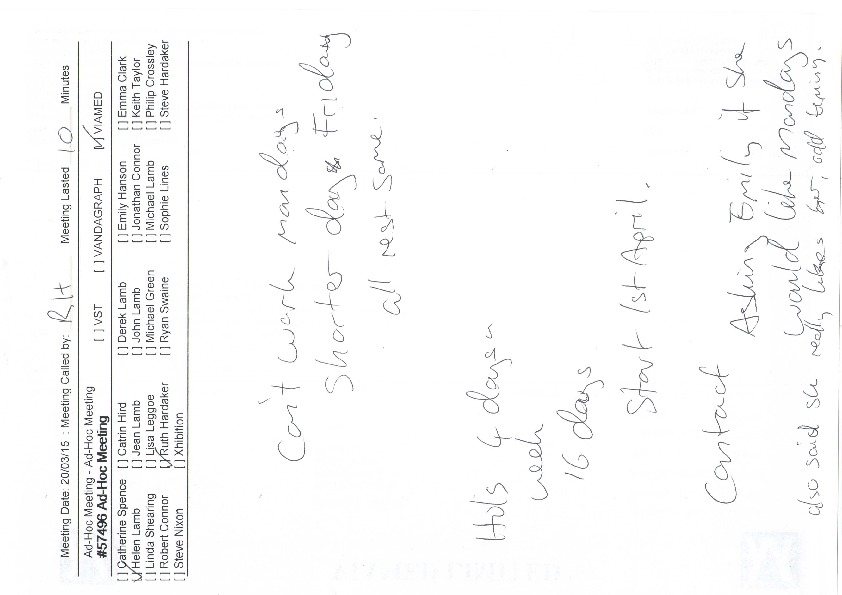 Meeting Date: 20/03/15 : Meeting Called by: RH Meeting Lasted 10 Minutes
Ad-Hoc Meeting - Ad-Hoc Meeting [ ] VST [ ] VANDAGRAPH [✓] VIAMED
#57496 Ad-Hoc Meeting
[ ] Catherine Spence [ ] Catrin Hird [ ] Derek Lamb [ ] Emily Hanson [ ] Emma Clark
[✓] Helen Lamb [ ] Jean Lamb [ ] John Lamb [ ] Jonathan Connor [ ] Keith Taylor
[ ] Linda Shearing [ ] Lisa Leggoe [ ] Michael Green [ ] Michael Lamb [ ] Philip Crossley
[ ] Robert Connor [✓] Ruth Hardaker [ ] Ryan Swaine [ ] Sophie Lines [ ] Steve Hardaker
[ ] Steve Nixon [ ] Xhibition
Can't work mondays
Shorter day Friday
all rest same.
Hols 4 days
week
16 days
Start 1st April.
Contact Asking Emily if she
would like mondays
also said she really likes